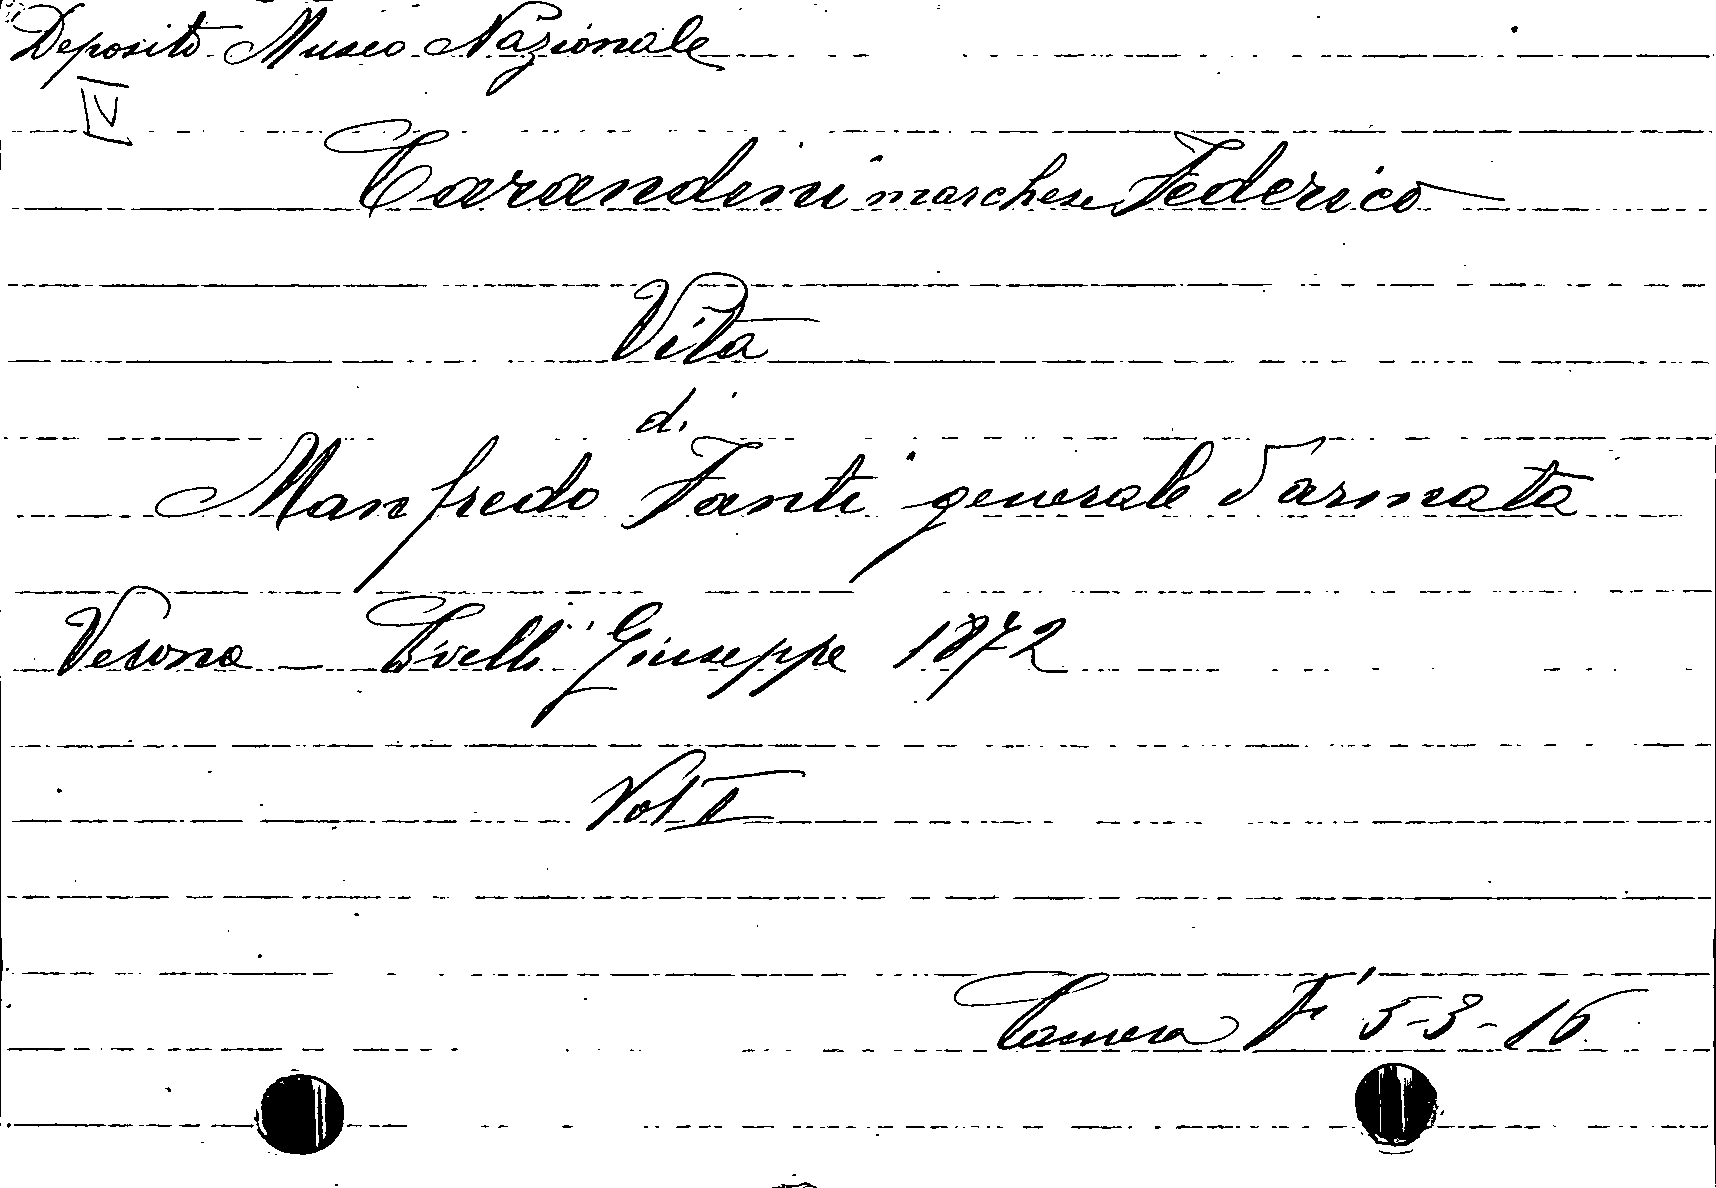 Deposito Museo Nazionale
IV
Carandini marchese Federico
Vita
di
Manfredo Fanti generale d'armata
Verona - Civelli Giuseppe 1872
Vol I
Camera F' 5-3-16